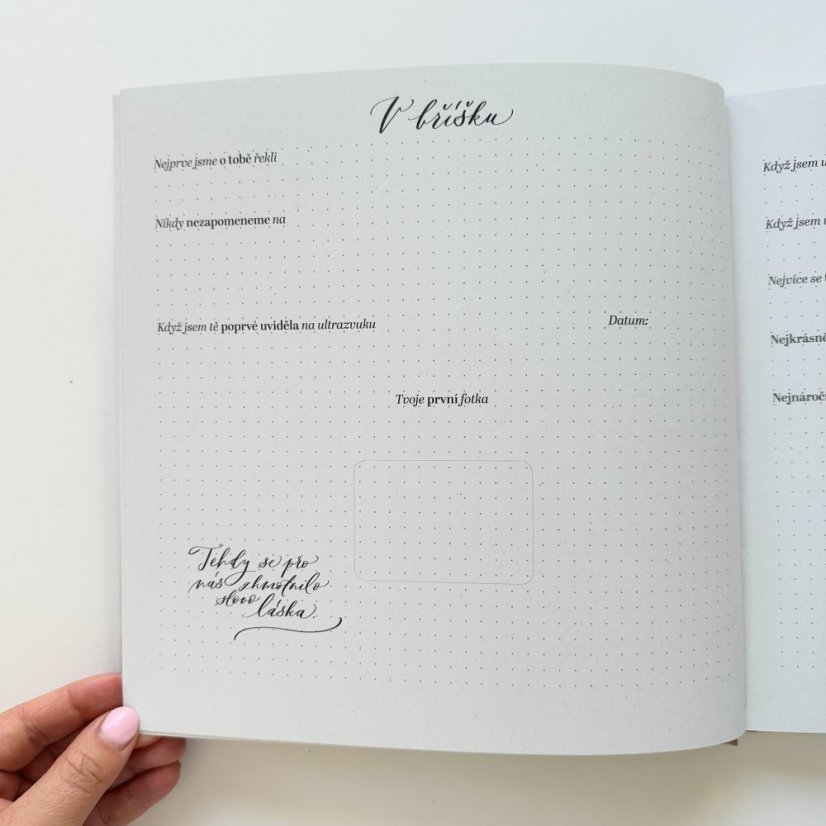 V bříšku
Nejprve jsme o tobě řekli
Nikdy nezapomeneme na
Když jsem tě poprvé uviděla na ultrazvuku
Datum:
Tvoje první fotka
Tehdy se pro
nás zhmotnilo
slovo
láska.
Když jsem
Když jsem
Nejvíce se